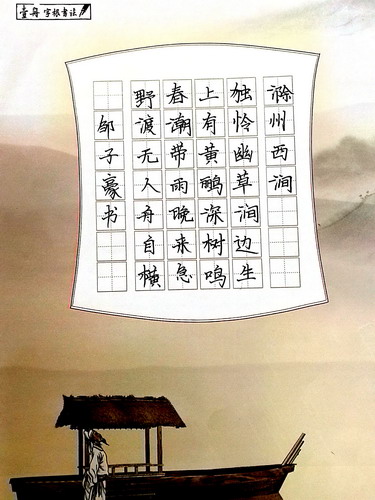 壹舟 字根书法
滁州西涧
独怜幽草涧边生
上有黄鹂深树鸣
春潮带雨晚来急
野渡无人舟自横
邹子豪书